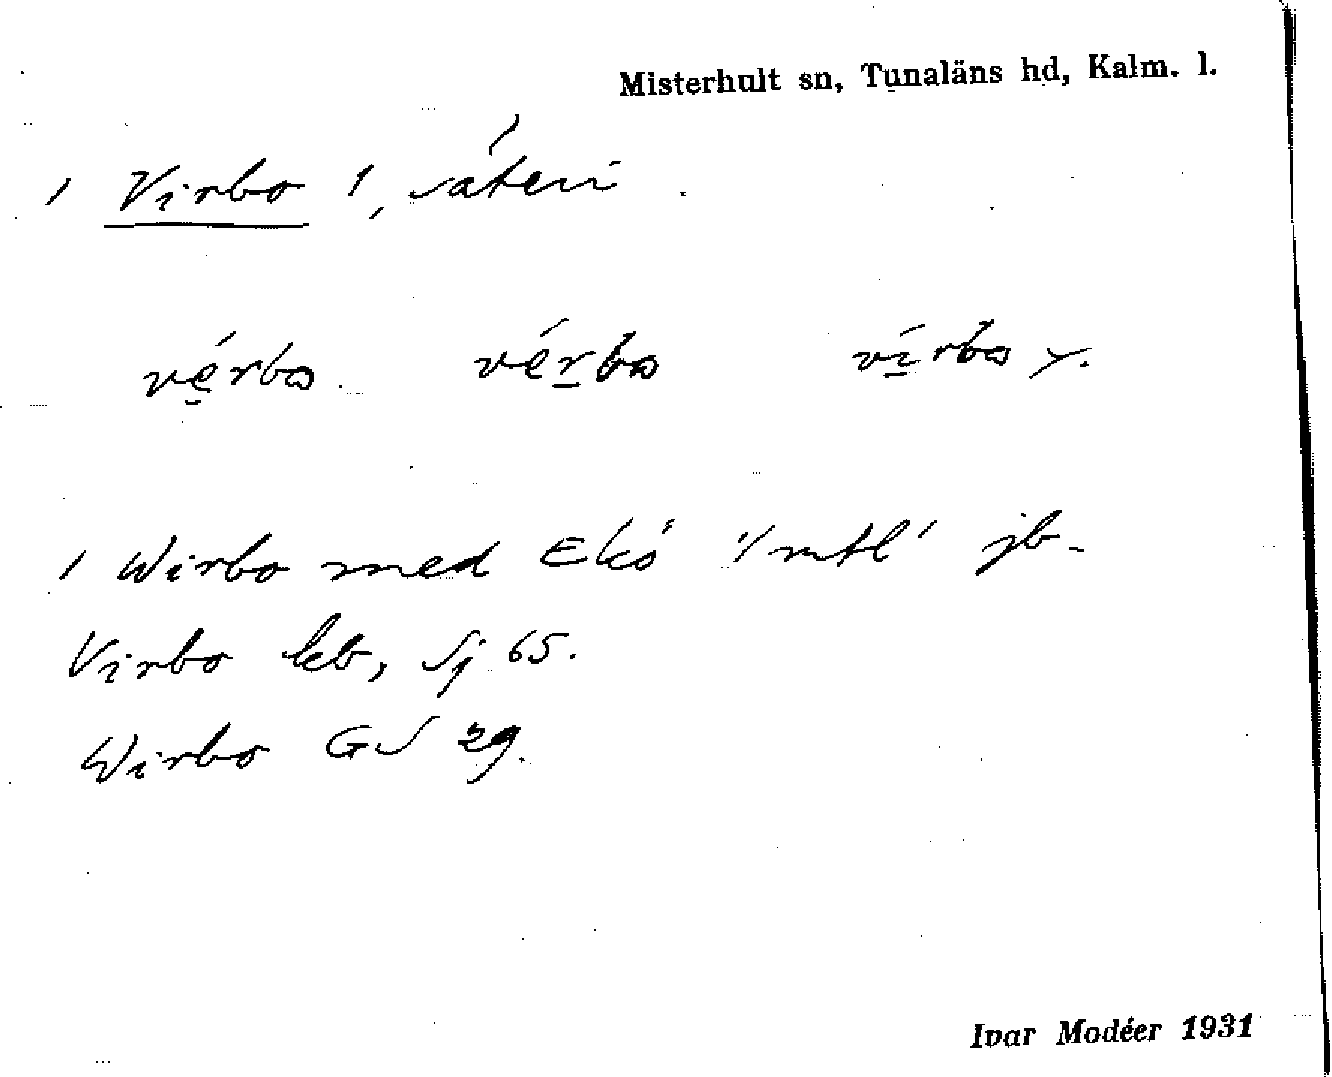 Misterhult sn, Tunaläns hd, Kalm. l.
1 Virbo 1, säteri
vérbω vérbω vírbω y.
1 Wirbo med Ekö '1 mtl' jb.
Virbo kb, Sj 65.
Wirbo GS 29.
Ivar Modéer 1931